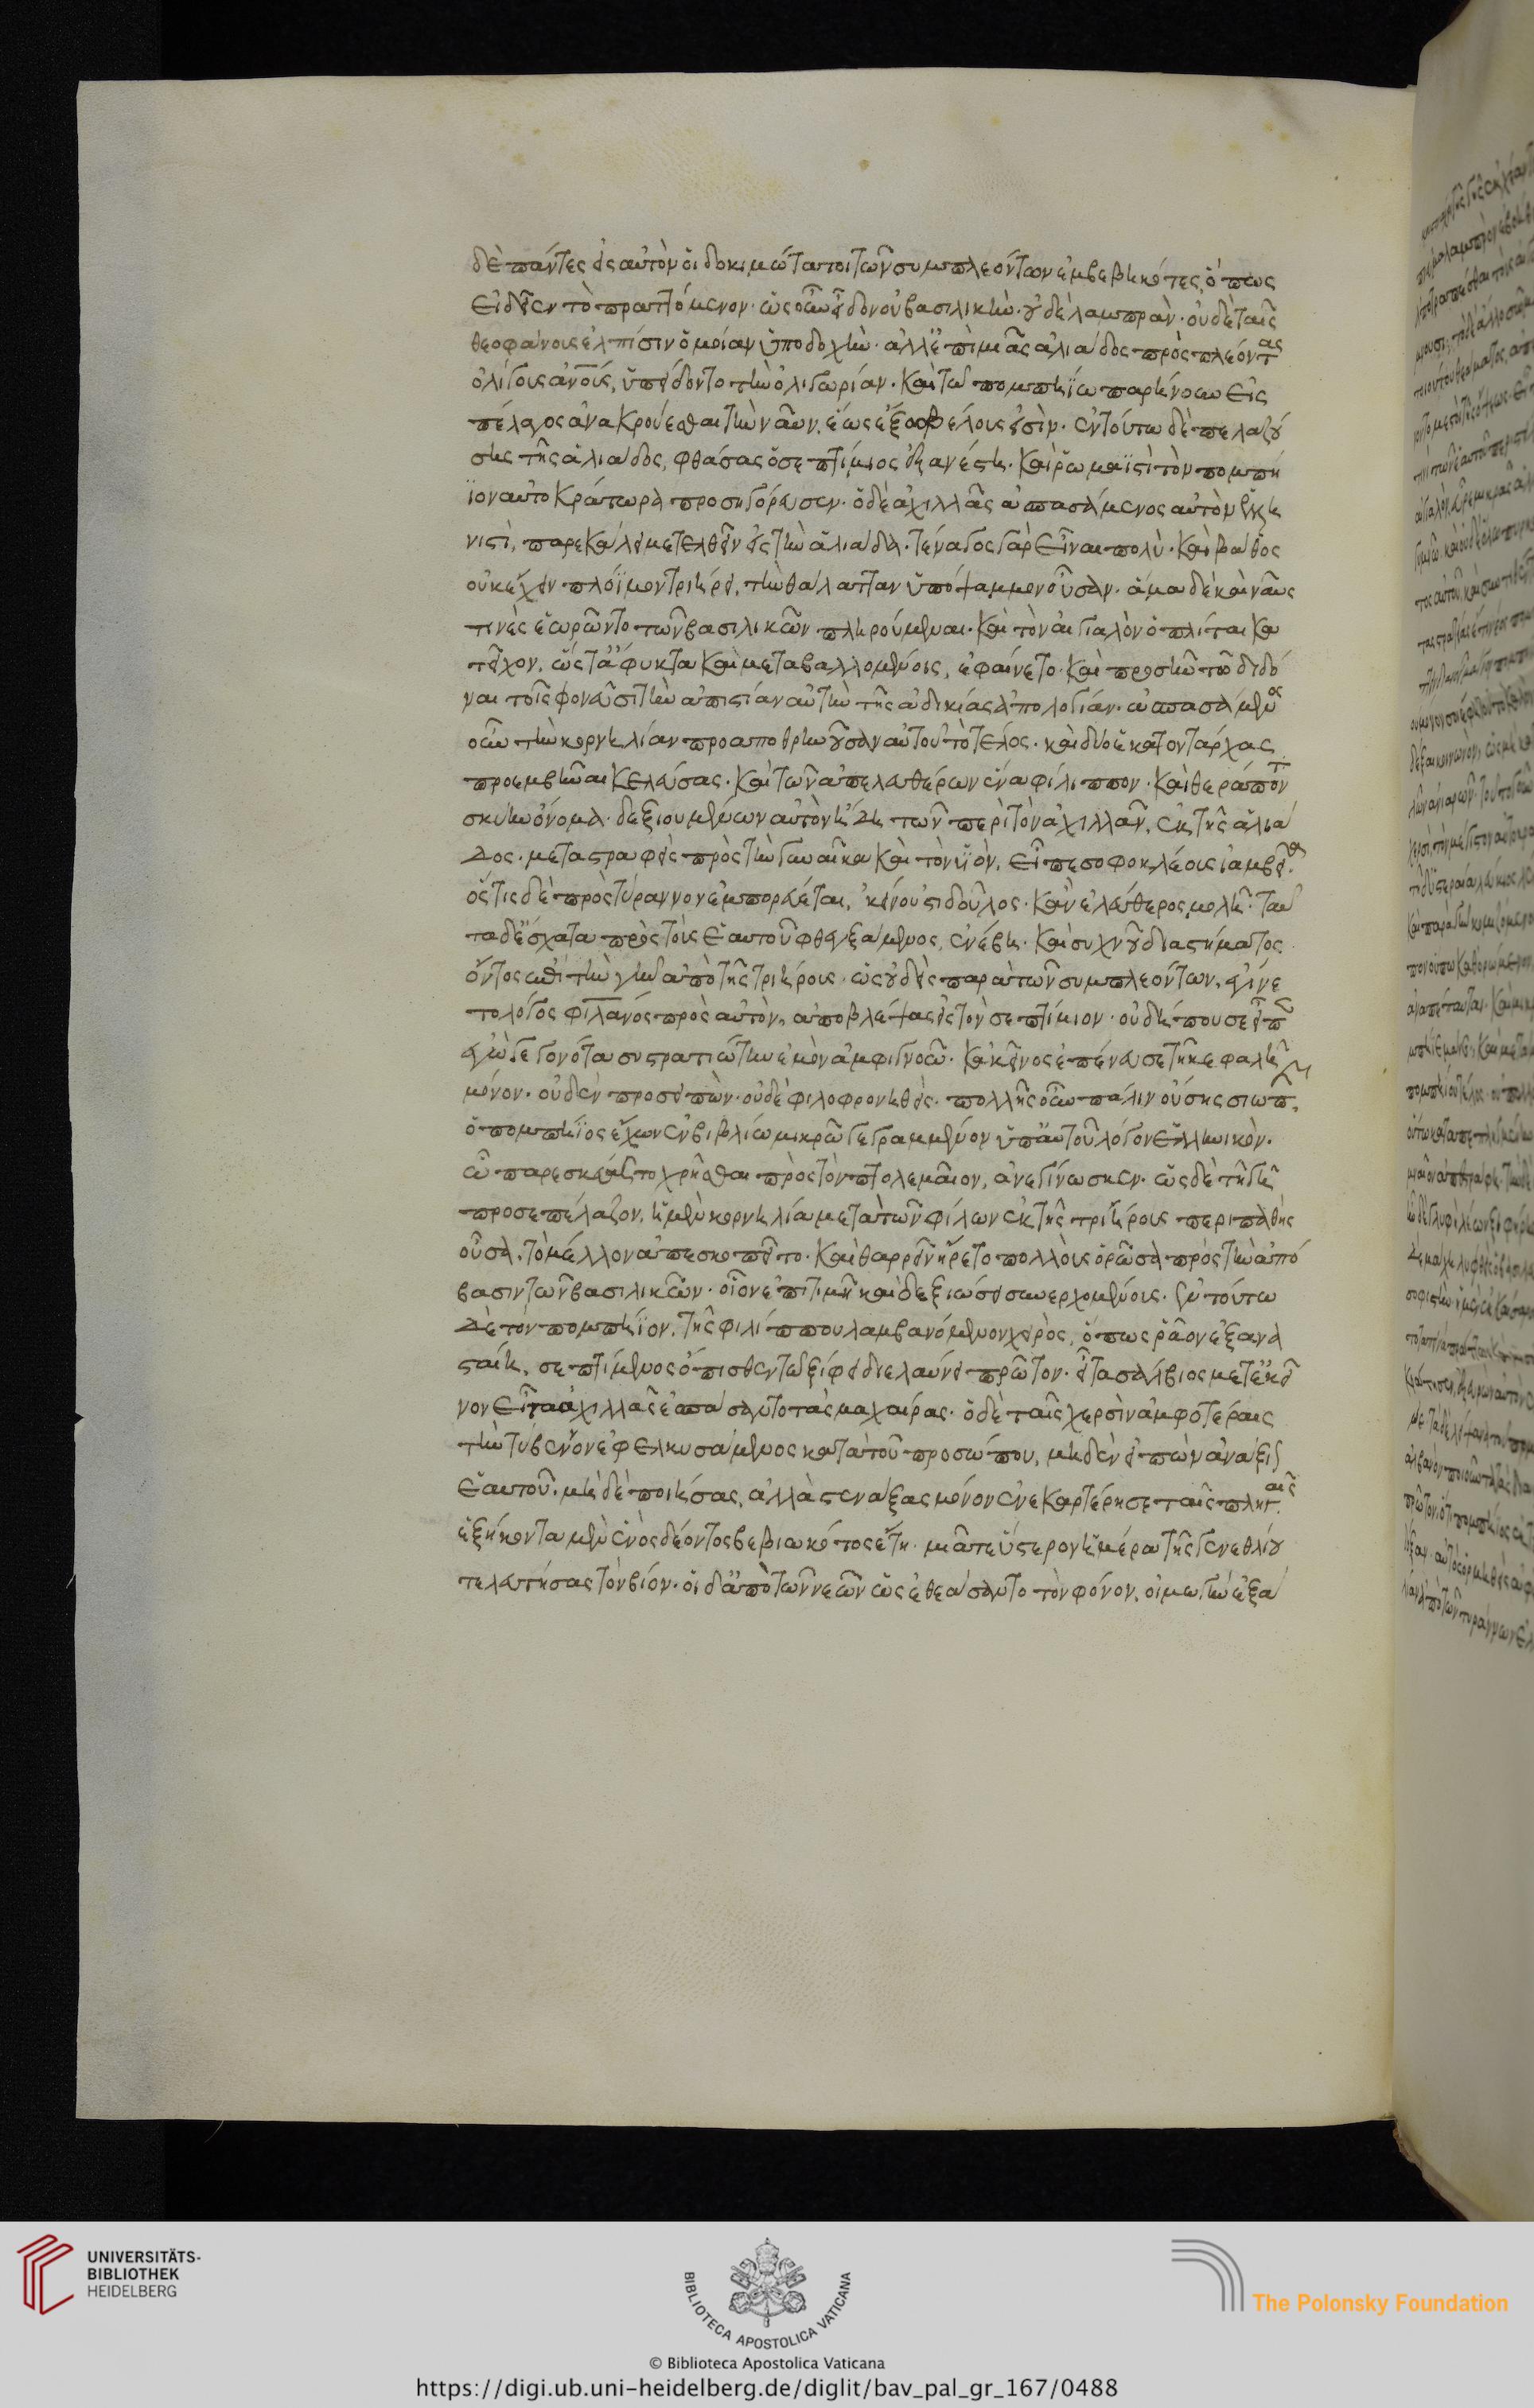 δὲ πάντες εἰς αὐτὸν οἱ δοκιμώτατοι τῶν συμπλεόντων ἐμβεβηκότες, ὅπως
εἰδεῖεν τὸ πραττόμενον· ὡς οὖν εἶδον οὐ βασιλικὴν· οὐδὲ λαμπρὰν· οὐδὲ ταῖς
θεοφάνους ἐλπίσιν ὁμοίαν ὑποδοχὴν· ἀλλ' ἐπὶ μιᾶς ἁλιάδος προσπλέοντας
ὀλίγους ἀνους, ὑπείδοντο τὴν ὀλιγωρίαν· καὶ τῶ πομπηίω παρήνουν εἰς
πέλαγος ἀνακρούεσθαι τὴν ναῦν, ἕως ἔξω βέλους εἰσὶν· ἐν τούτω δὲ πελαζού
σης τῆς ἁλιάδος, φθάσας ὁ σεπτίμιος ἐξανέστη· καὶ ῥωμαϊστὶ τὸν πομπή
ϊον αὐτοκράτωρα προσηγόρευσεν· ὁ δὲ ἀχιλλᾶς ἀσπασάμενος αὐτὸν ἑλλη
νιστὶ, παρεκάλει μετελθεῖν εἰς τὴν ἁλιάδα· τέναγος γὰρ εἶναι πολὺ· καὶ βάθος
οὐκ ἔχειν πλόϊμον τριήρει, τὴν θάλατταν ὑπόψαμμον οὖσαν· ἅμα δὲ καὶ ναῦς
τινὲς ἑωρῶντο τῶν βασιλικῶν πληρούμεναι· καὶ τὸν αἰγιαλὸν ὁπλίται κα
τεῖχον, ὥστ' ἄφυκτα καὶ μεταβαλλομένοις, ἐφαίνετο· καὶ προσῆν τὸ διδό
ναι τοῖς φονεῦσι τὴν ἀπιστίαν αὐτὴν τῆς ἀδικίας ἀπολογίαν· ἀσπασάμενος
οὖν τὴν κορνηλίαν προαποθρηνοῦσαν αὐτοῦ τὸ τέλος· καὶ δύο ἑκατοντάρχας
προεμβῆναι κελεύσας· καὶ τῶν ἀπελευθέρων ἕνα φίλιππον· καὶ θεράποντ
σκύην ὄνομα· δεξιουμένων αὐτὸν ἤδη τῶν περὶ τὸν ἀχιλλᾶν, ἐκ τῆς ἁλιά
δος· μεταστραφεὶς πρὸς τὴν γυναῖκα καὶ τὸν υἱὸν, εἶπε σοφοκλέους ἰαμβεῖα·
ὅστις δὲ πρὸς τύραννον ἐμπορεύεται, κείνου στι δοῦλος· κἂν ἐλεύθερος μολῆ· ταῦ
τα δ' ἔσχατα πρὸς τοὺς ἑαυτοῦ φθεγξάμενος, ἐνέβη· καὶ συχνοῦ διαστήματος
ὄντος ἐπὶ τὴν γῆν ἀπὸ τῆς τριήρους· ὡς οὐδεὶς παρὰ τῶν συμπλεόντων, ἐγίνε
το λόγος φιλάνος πρὸς αὐτὸν, ἀποβλέψας εἰς τὸν σεπτίμιον· οὐ δήπου σε εἶπ
ἐγὼ γεγονότα συστρατιώτην ἐμὸν ἀμφιγνοῶ· κἀκεῖνος ἐπένευσε τῆ κεφαλῆ
μόνον· οὐδὲν προσειπὼν· οὐδὲ φιλοφρονηθείς· πολλῆς οὖν πάλιν οὔσης σιωπῆς,
ὁ πομπήϊος ἔχων ἐν βιβλίω μικρῶ γεγραμμένον ὑπ' αὐτοῦ λόγον ἑλληνικὸν·
ὧ παρεσκεύαστο χρῆσθαι πρὸς τὸν πτολεμαῖον, ἀνεγίνωσκεν· ὡς δὲ τῆ γῆ
προσεπέλαζον, ἡ μὲν κορνηλία μετὰ τῶν φίλων ἐκ τῆς τριήρους περιπαθὴς
οὖσα, τὸ μέλλον ἀπεσκοπεῖτο· καὶ θαρρεῖν ἤρχετο πολλοὺς ὁρῶσα πρὸς τὴν ἀπό
βασιν τῶν βασιλικῶν· οἷον ἐπὶ τιμῆ καὶ δεξιώσει συνερχομένους· ἐν τούτω
δὲ τὸν πομπήϊον, τῆς φιλίππου λαμβανόμενον χειρὸς, ὅπως ῥᾶον ἐξανα
σταίη, σεπτίμενος ὄπισθεν τῶ ξίφει διελαύνει πρῶτον· εἶτα σάλβιος μετ' ἐκεῖ
νον εἶτα ἀχιλλᾶς ἐσπάσαντο τὰς μαχαίρας· ὁ δὲ ταῖς χερσὶν ἀμφοτέραις
τὴν τήβεννον ἐφελκυσάμενος κατὰ τοῦ προσώπου, μηδὲν εἰπὼν ἀνάξιον
ἑαυτοῦ· μηδὲ ποιήσας, ἀλλὰ στενάξας μόνον ἐνεκαρτέρησε ταῖς πληγαῖς
ἑξήκοντα μὲν ἑνὸς δέοντος βεβιωκότος ἔτη· μιᾶ τε ὕστερον ἡμέρα τῆς γενεθλίου
τελευτήσας τὸν βίον· οἱ δ' ἀπὸ τῶν νεῶν ὡς ἐθεάσαντο τὸν φόνον, οἰμωγὴν ἐξά
UNIVERSITÄTS-
BIBLIOTHEK
HEIDELBERG
BIBLIOTECA APOSTOLICA VATICANA
The Polonsky Foundation
© Biblioteca Apostolica Vaticana
https://digi.ub.uni-heidelberg.de/diglit/bav_pal_gr_167/0488